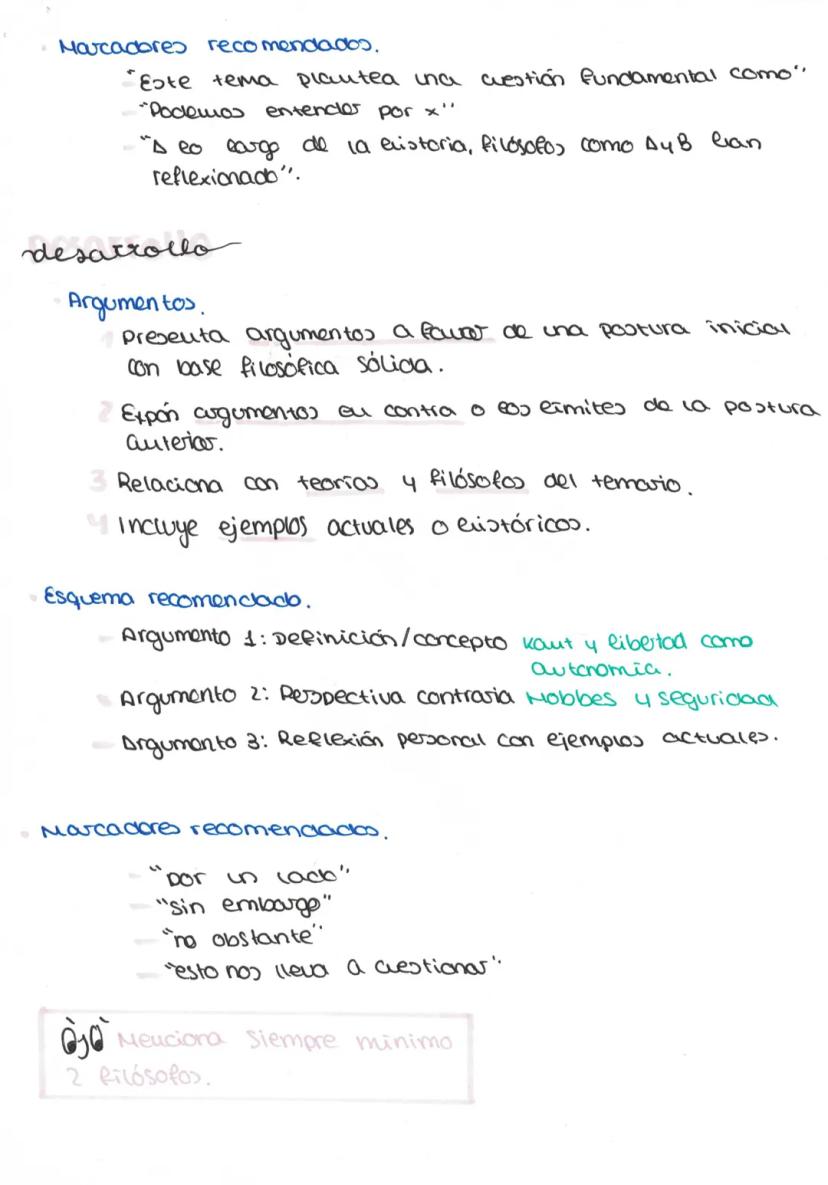 Marcadores recomendados.
"Este tema plantea una cuestión fundamental como"
"Podemos entender por x"
"A lo largo de la historia, filósofos como A y B han
reflexionado".
desarrollo
Argumentos.
1 Presenta argumentos a favor de una postura inicial
con base filosófica sólida.
2 Expón argumentos en contra o los límites de la postura
anterior.
3 Relaciona con teorías y filósofos del temario.
4 Incluye ejemplos actuales o históricos.
Esquema recomendado.
Argumento 1: Definición/concepto Kant y libertad como
autonomía.
Argumento 2: Perspectiva contraria Hobbes y seguridad
Argumento 3: Reflexión personal con ejemplos actuales.
Marcadores recomendados.
"por un lado"
"sin embargo"
"no obstante"
"esto nos lleva a cuestionar"
Ojo Menciona siempre mínimo
2 filósofos.